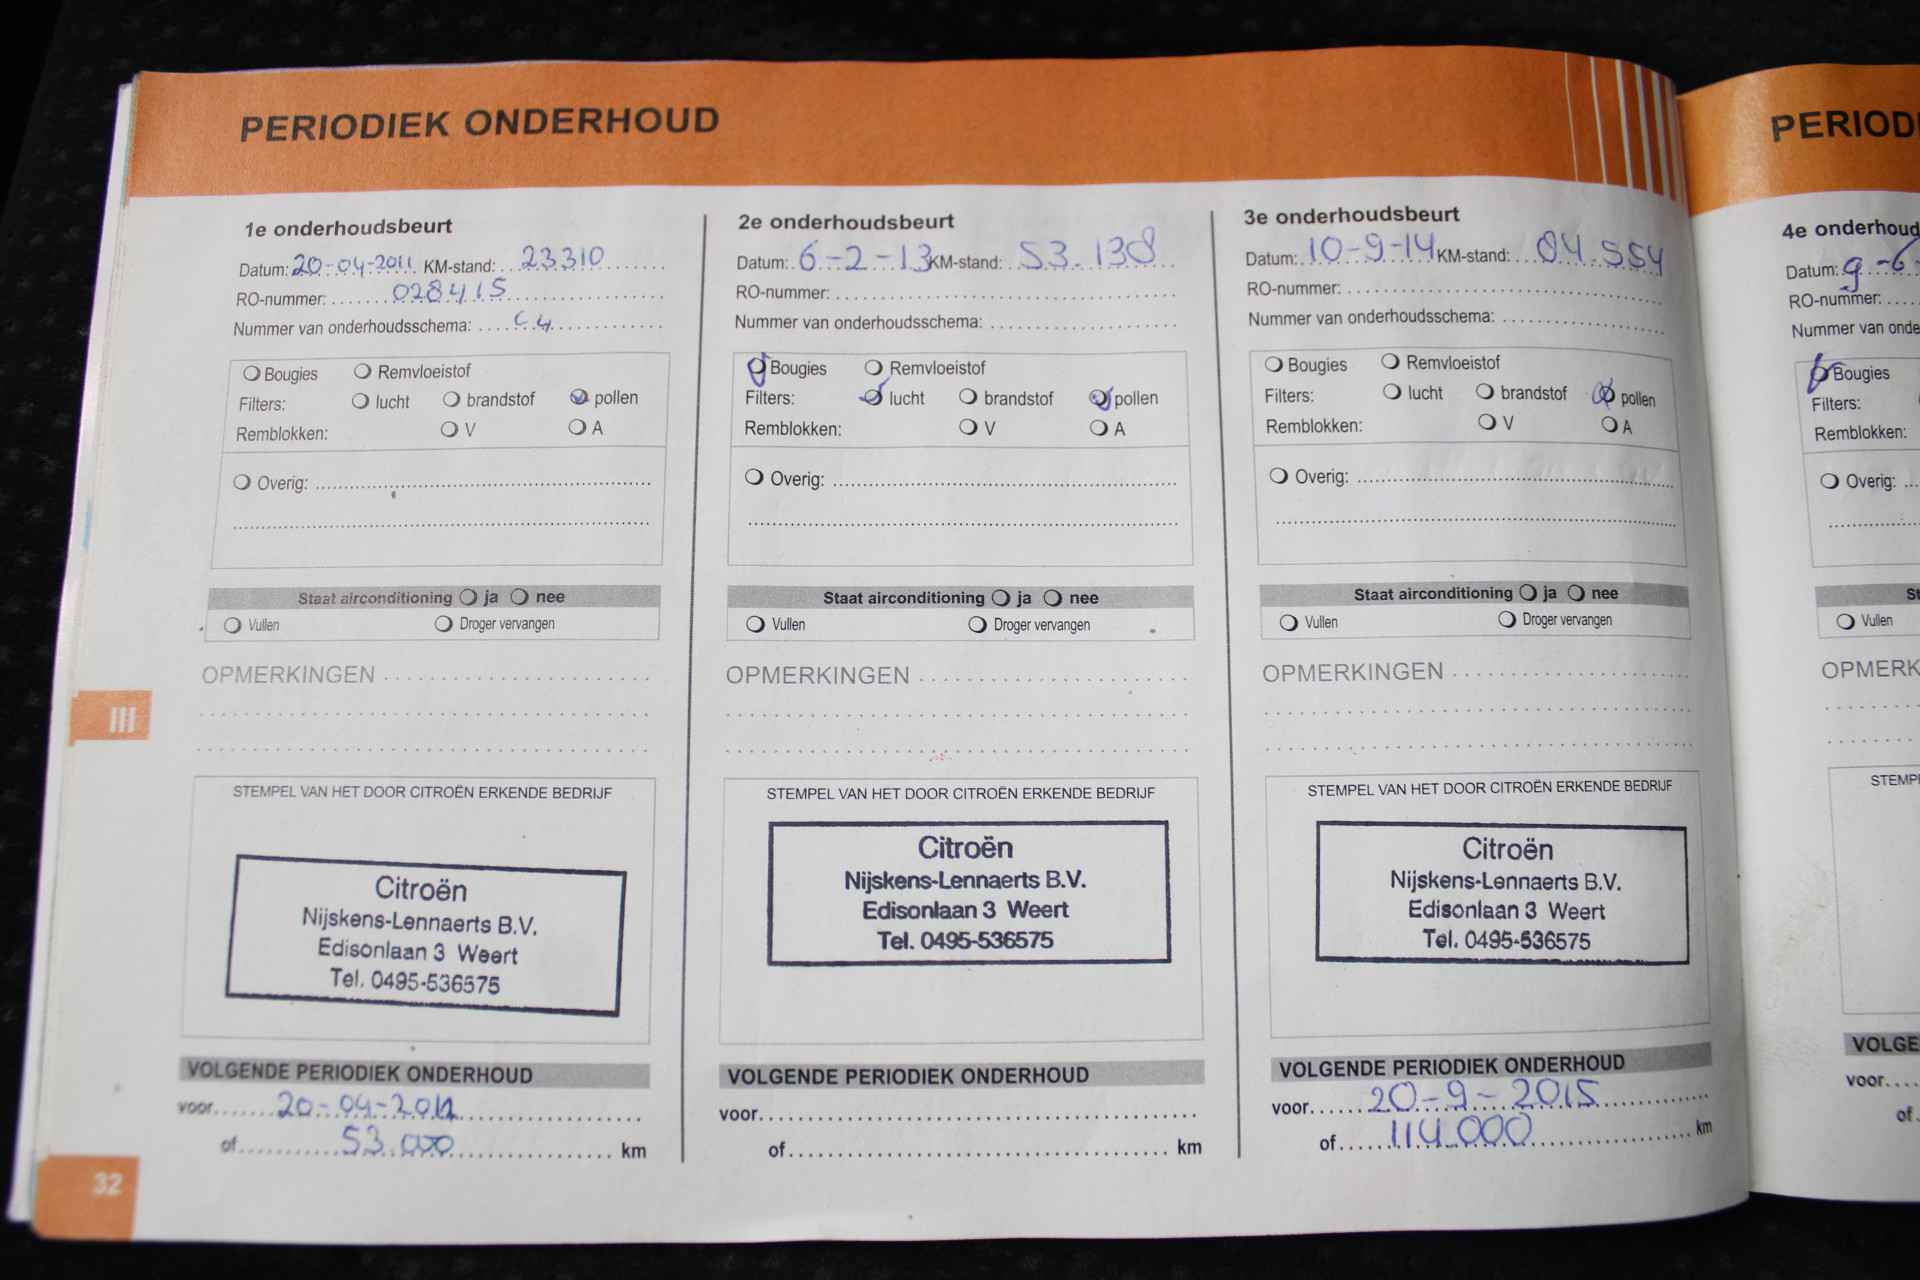 PERIODIEK ONDERHOUD
1e onderhoudsbeurt
Datum: 20-04-2011 KM-stand: 23310
RO-nummer: 028415
Nummer van onderhoudsschema: C4
Bougies Remvloeistof
Filters: lucht brandstof pollen
Remblokken: V A
Overig:
Staat airconditioning ja nee
Vullen Droger vervangen
OPMERKINGEN
STEMPEL VAN HET DOOR CITROËN ERKENDE BEDRIJF
Citroën
Nijskens-Lennaerts B.V.
Edisonlaan 3 Weert
Tel. 0495-536575
VOLGENDE PERIODIEK ONDERHOUD
voor 20-04-2012
of 53.000 km
2e onderhoudsbeurt
Datum: 6-2-13 KM-stand: 53.138
RO-nummer:
Nummer van onderhoudsschema:
Bougies Remvloeistof
Filters: lucht brandstof pollen
Remblokken: V A
Overig:
Staat airconditioning ja nee
Vullen Droger vervangen
OPMERKINGEN
STEMPEL VAN HET DOOR CITROËN ERKENDE BEDRIJF
Citroën
Nijskens-Lennaerts B.V.
Edisonlaan 3 Weert
Tel. 0495-536575
VOLGENDE PERIODIEK ONDERHOUD
voor
of km
3e onderhoudsbeurt
Datum: 10-9-14 KM-stand: 84.554
RO-nummer:
Nummer van onderhoudsschema:
Bougies Remvloeistof
Filters: lucht brandstof pollen
Remblokken: V A
Overig:
Staat airconditioning ja nee
Vullen Droger vervangen
OPMERKINGEN
STEMPEL VAN HET DOOR CITROËN ERKENDE BEDRIJF
Citroën
Nijskens-Lennaerts B.V.
Edisonlaan 3 Weert
Tel. 0495-536575
VOLGENDE PERIODIEK ONDERHOUD
voor 20-9-2015
of 114.000 km
III
32
PERIOD
4e onderhoud
Datum: 9-6-
RO-nummer:
Nummer van onde
Bougies
Filters:
Remblokken:
Overig:
St
Vullen
OPMERK
STEMP
VOLGE
voor
of